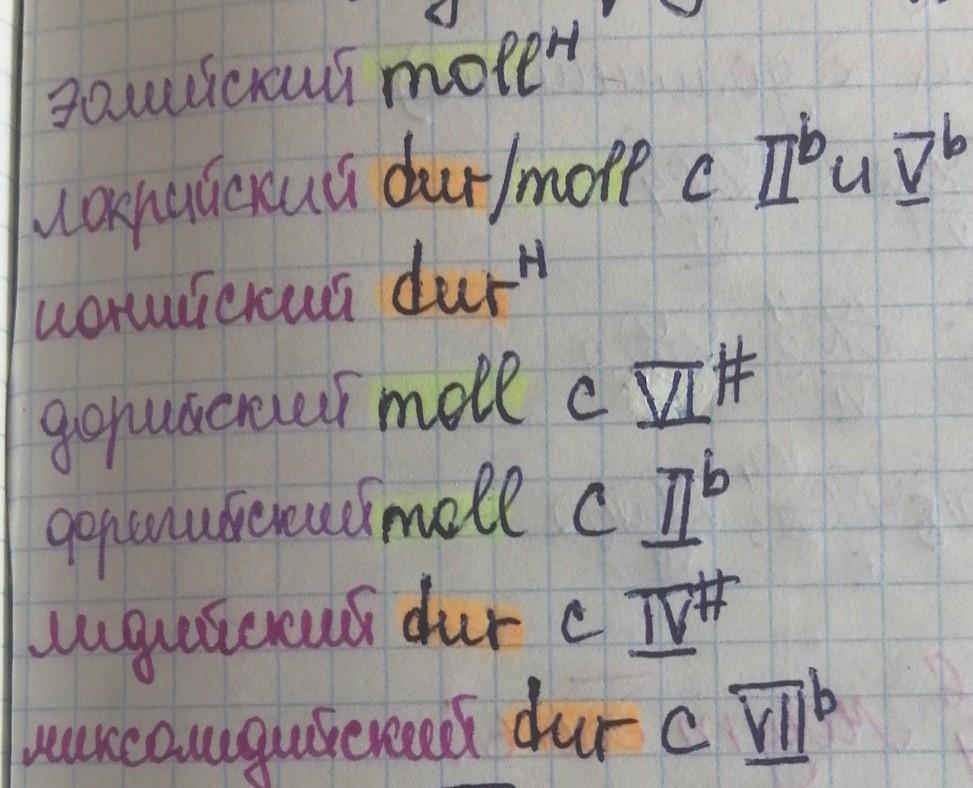 эолийский moll^н
локрийский dur/moll с II^b и V^b
ионийский dur^н
дорийский moll с VI^#
фригийский moll с II^b
лидийский dur с IV^#
миксолидийский dur с VII^b